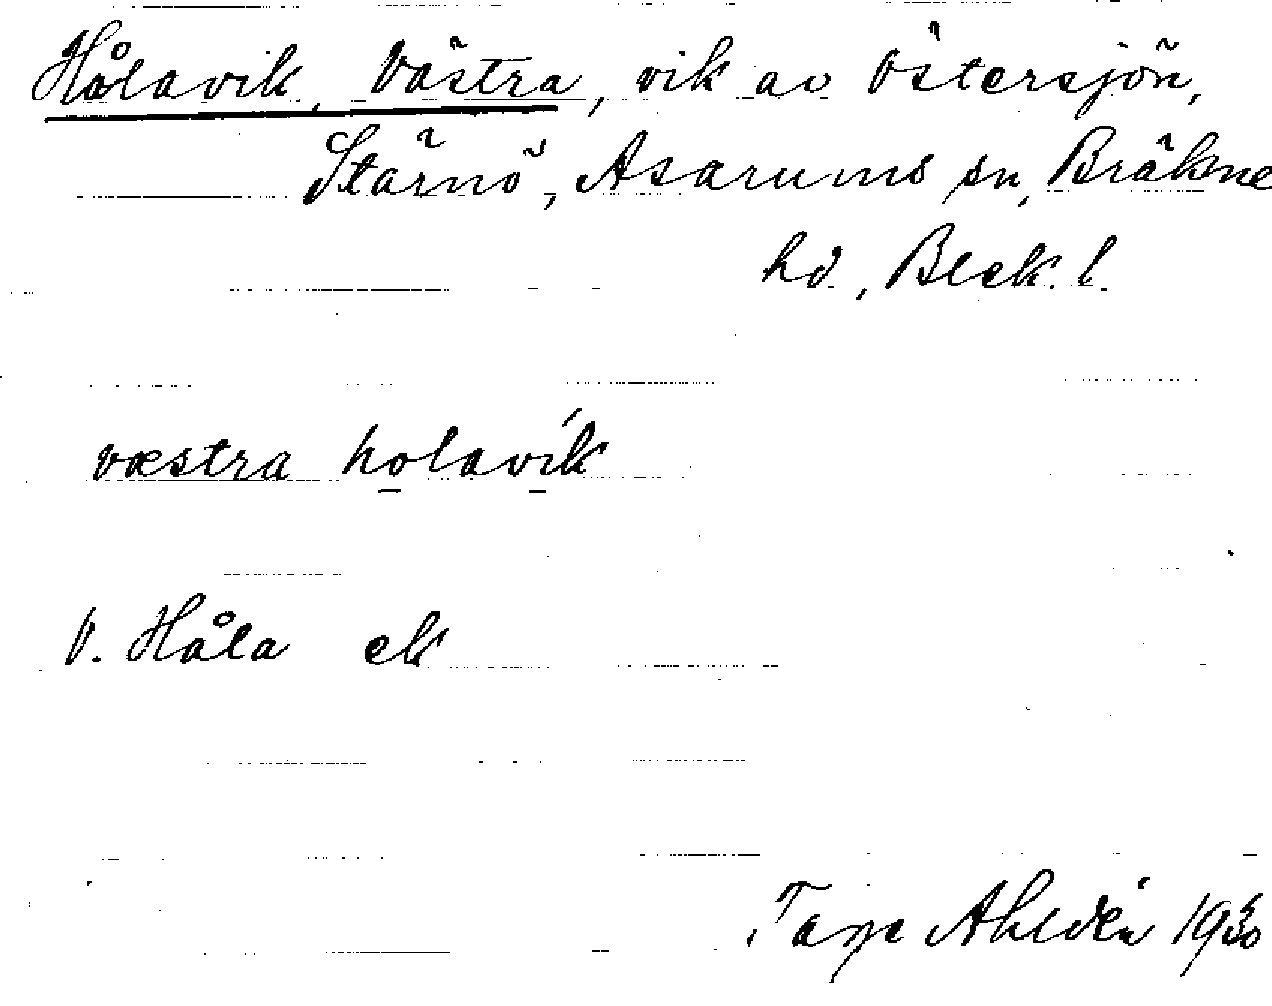 Hålavik, Västra, vik av Östersjön,
Stärnö, Asarums sn, Bräkne
hd., Blek. l.
væstra holavík
V. Håla ek
Tage Ahldén 1930